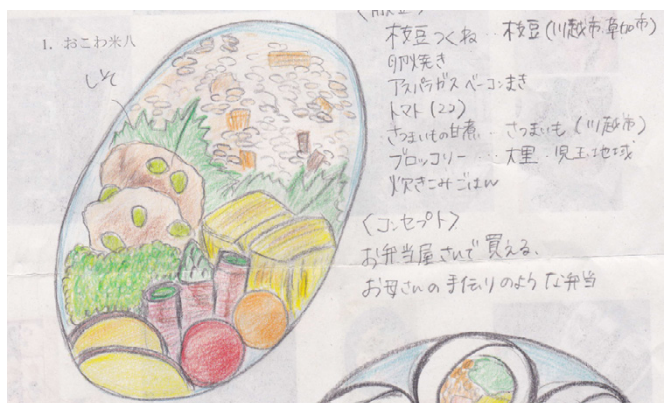 1. おこわ米八
しそ
枝豆つくね‥枝豆(川越市.草加市)
卵焼き
アスパラガスベーコンまき
トマト(2コ)
さつまいもの甘煮‥さつまいも(川越市)
ブロッコリー‥大里‥児玉地域
炊きこみごはん
〈コンセプト〉
お弁当屋さんで買える、
お母さんの手伝りのような弁当